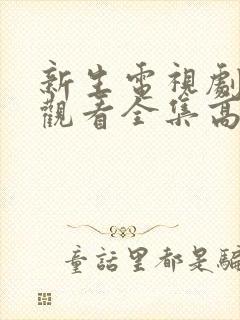 新生電視劇
觀看全集高
童話里都是騙